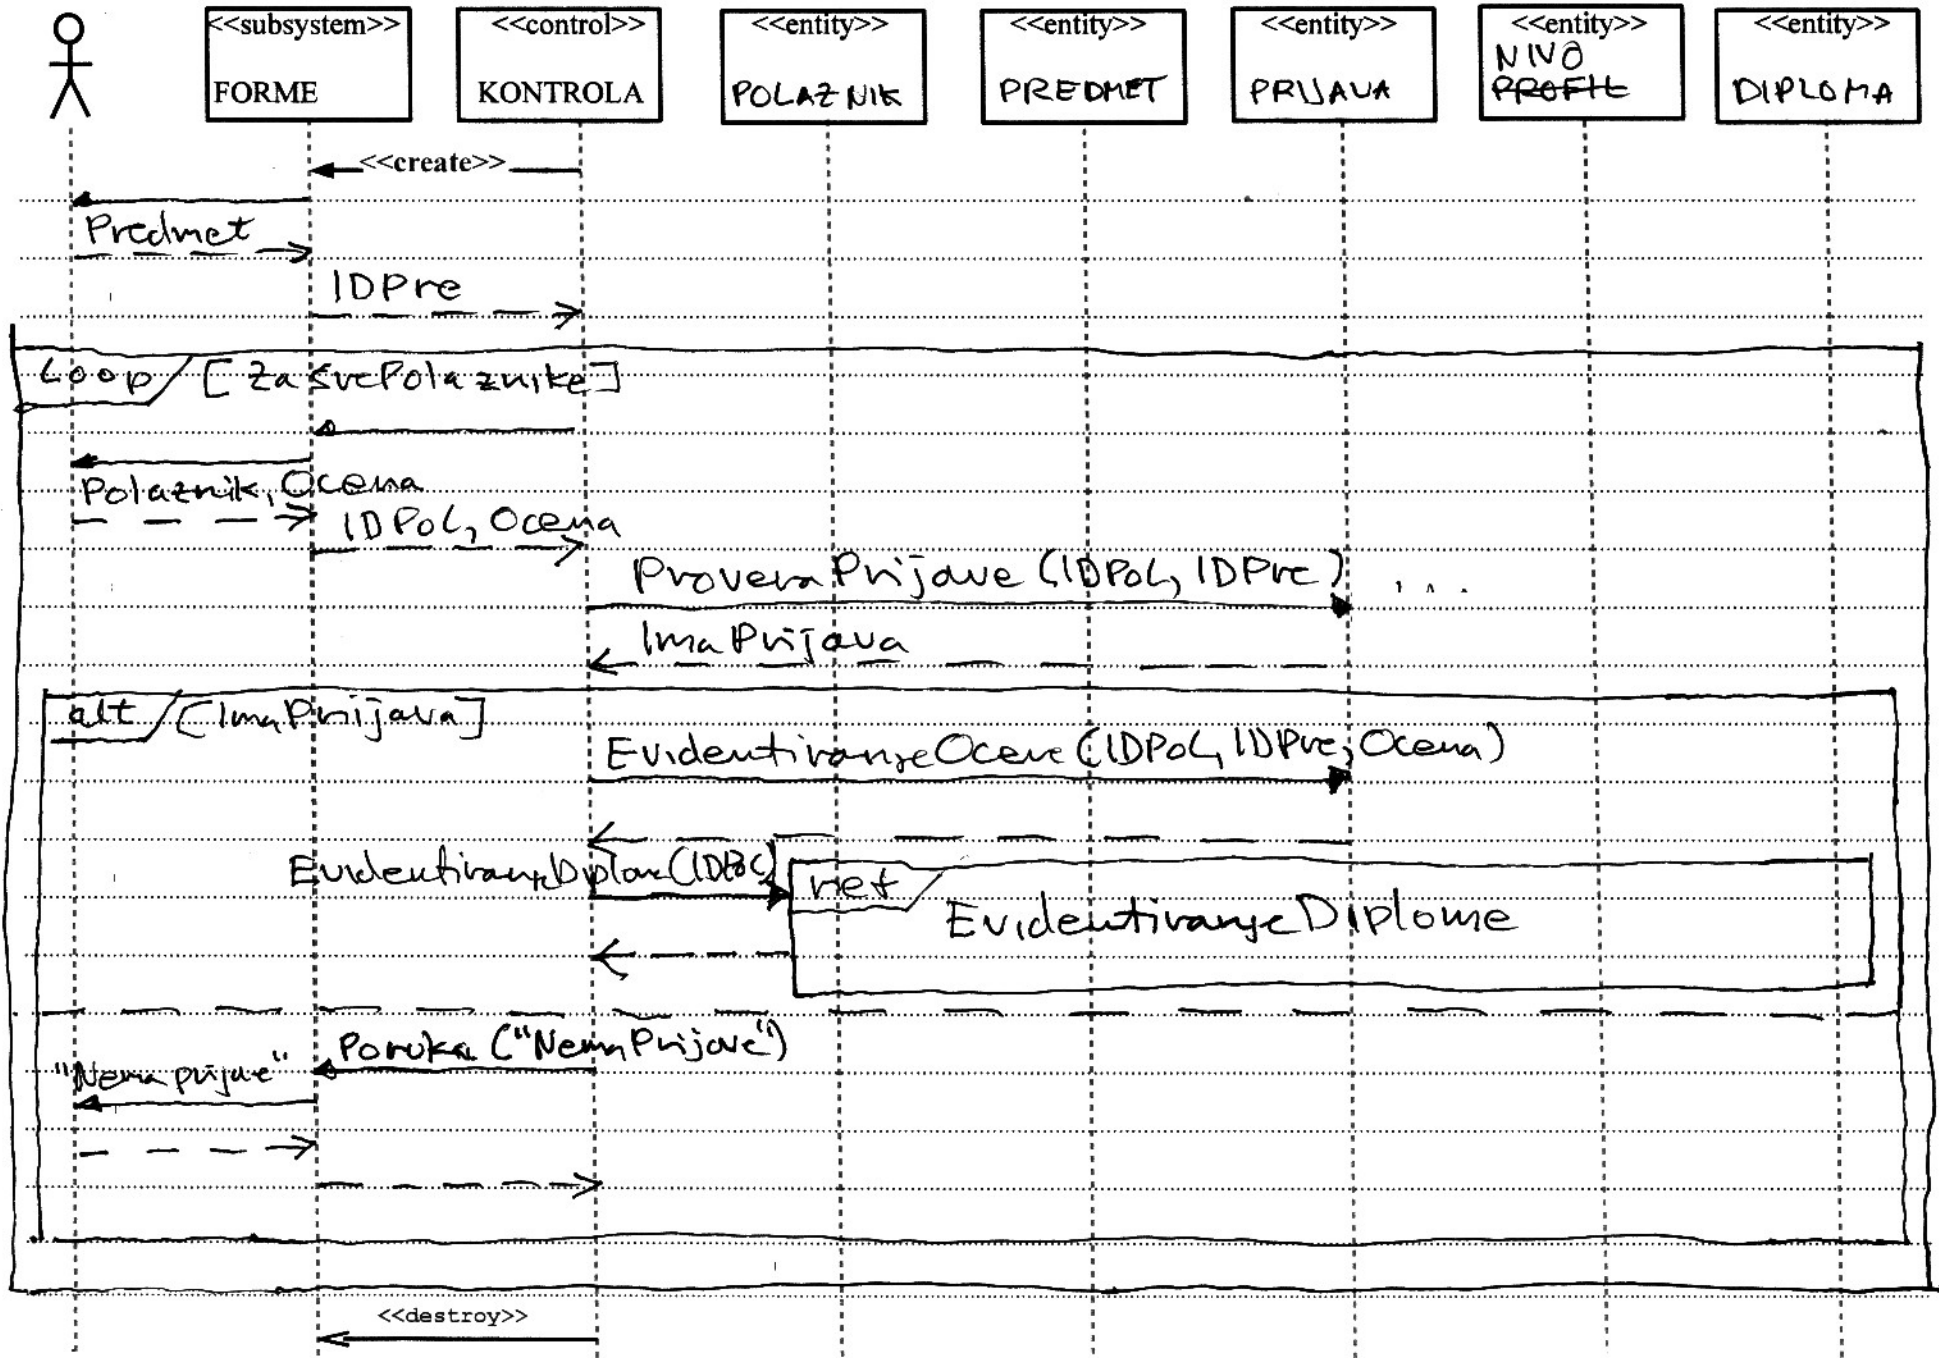 <<subsystem>> <<control>> <<entity>> <<entity>> <<entity>> <<entity>> <<entity>>
NIVO
FORME KONTROLA POLAZNIK PREDMET PRIJAVA PROFIL DIPLOMA
<<create>>
Predmet
IDPre
Loop [ZaSvePolaznike]
Polaznik, Ocena
IDPol, Ocena
ProveraPrijave (IDPol, IDPre)
ImaPrijava
alt [ImaPrijava]
EvidentiranjeOcene (IDPol, IDPre, Ocena)
EvidentiranjeDiplome (IDPol)
ref
EvidentiranjeDiplome
Poruka ("NemaPrijave")
"Nema prijave"
<<destroy>>